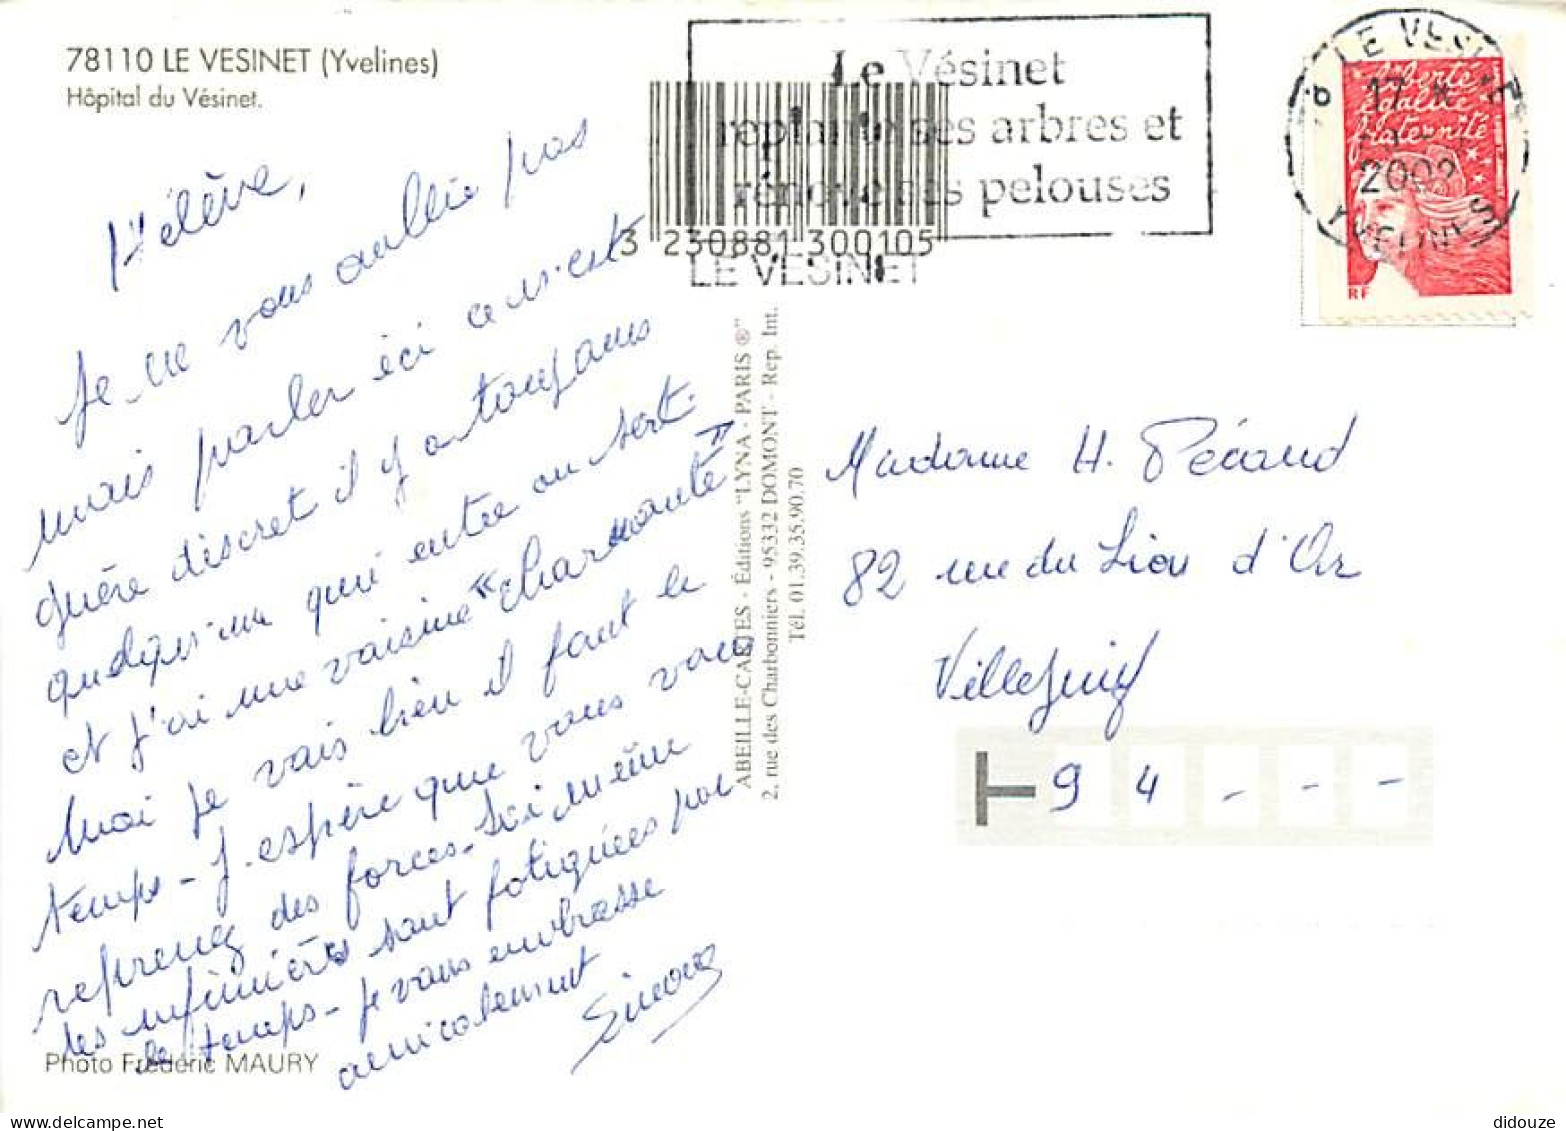 78110 LE VESINET (Yvelines)
Hôpital du Vésinet.
Hélève,
Je ne vous oublie pas
mais parler ici ce n'est
guère discret il y a toujours
quelqu'un qui entre ou sort.
et j'ai une voisine "charmante"
Moi je vais bien il faut le
temps - J'espère que vous vous
reprenez des forces - Ici même
les infinières sont fatiguées par
le temps - Je vous embrasse
amicalement
Simone
Photo Frédéric MAURY
Le Vésinet
replante ses arbres et
rénove ses pelouses
3 230881 300105
LE VESINET
LE VESINET
17
2002
YVELINES
liberté
égalité
fraternité
RF
ABEILLE-CARTES - Éditions "LYNA - PARIS ®"
2, rue des Charbonniers - 95332 DOMONT - Rep. Int.
Tél. 01.39.35.90.70
Madame H.
82 rue du Lion d'Or
Villejuif
9 4 - - -
didouze